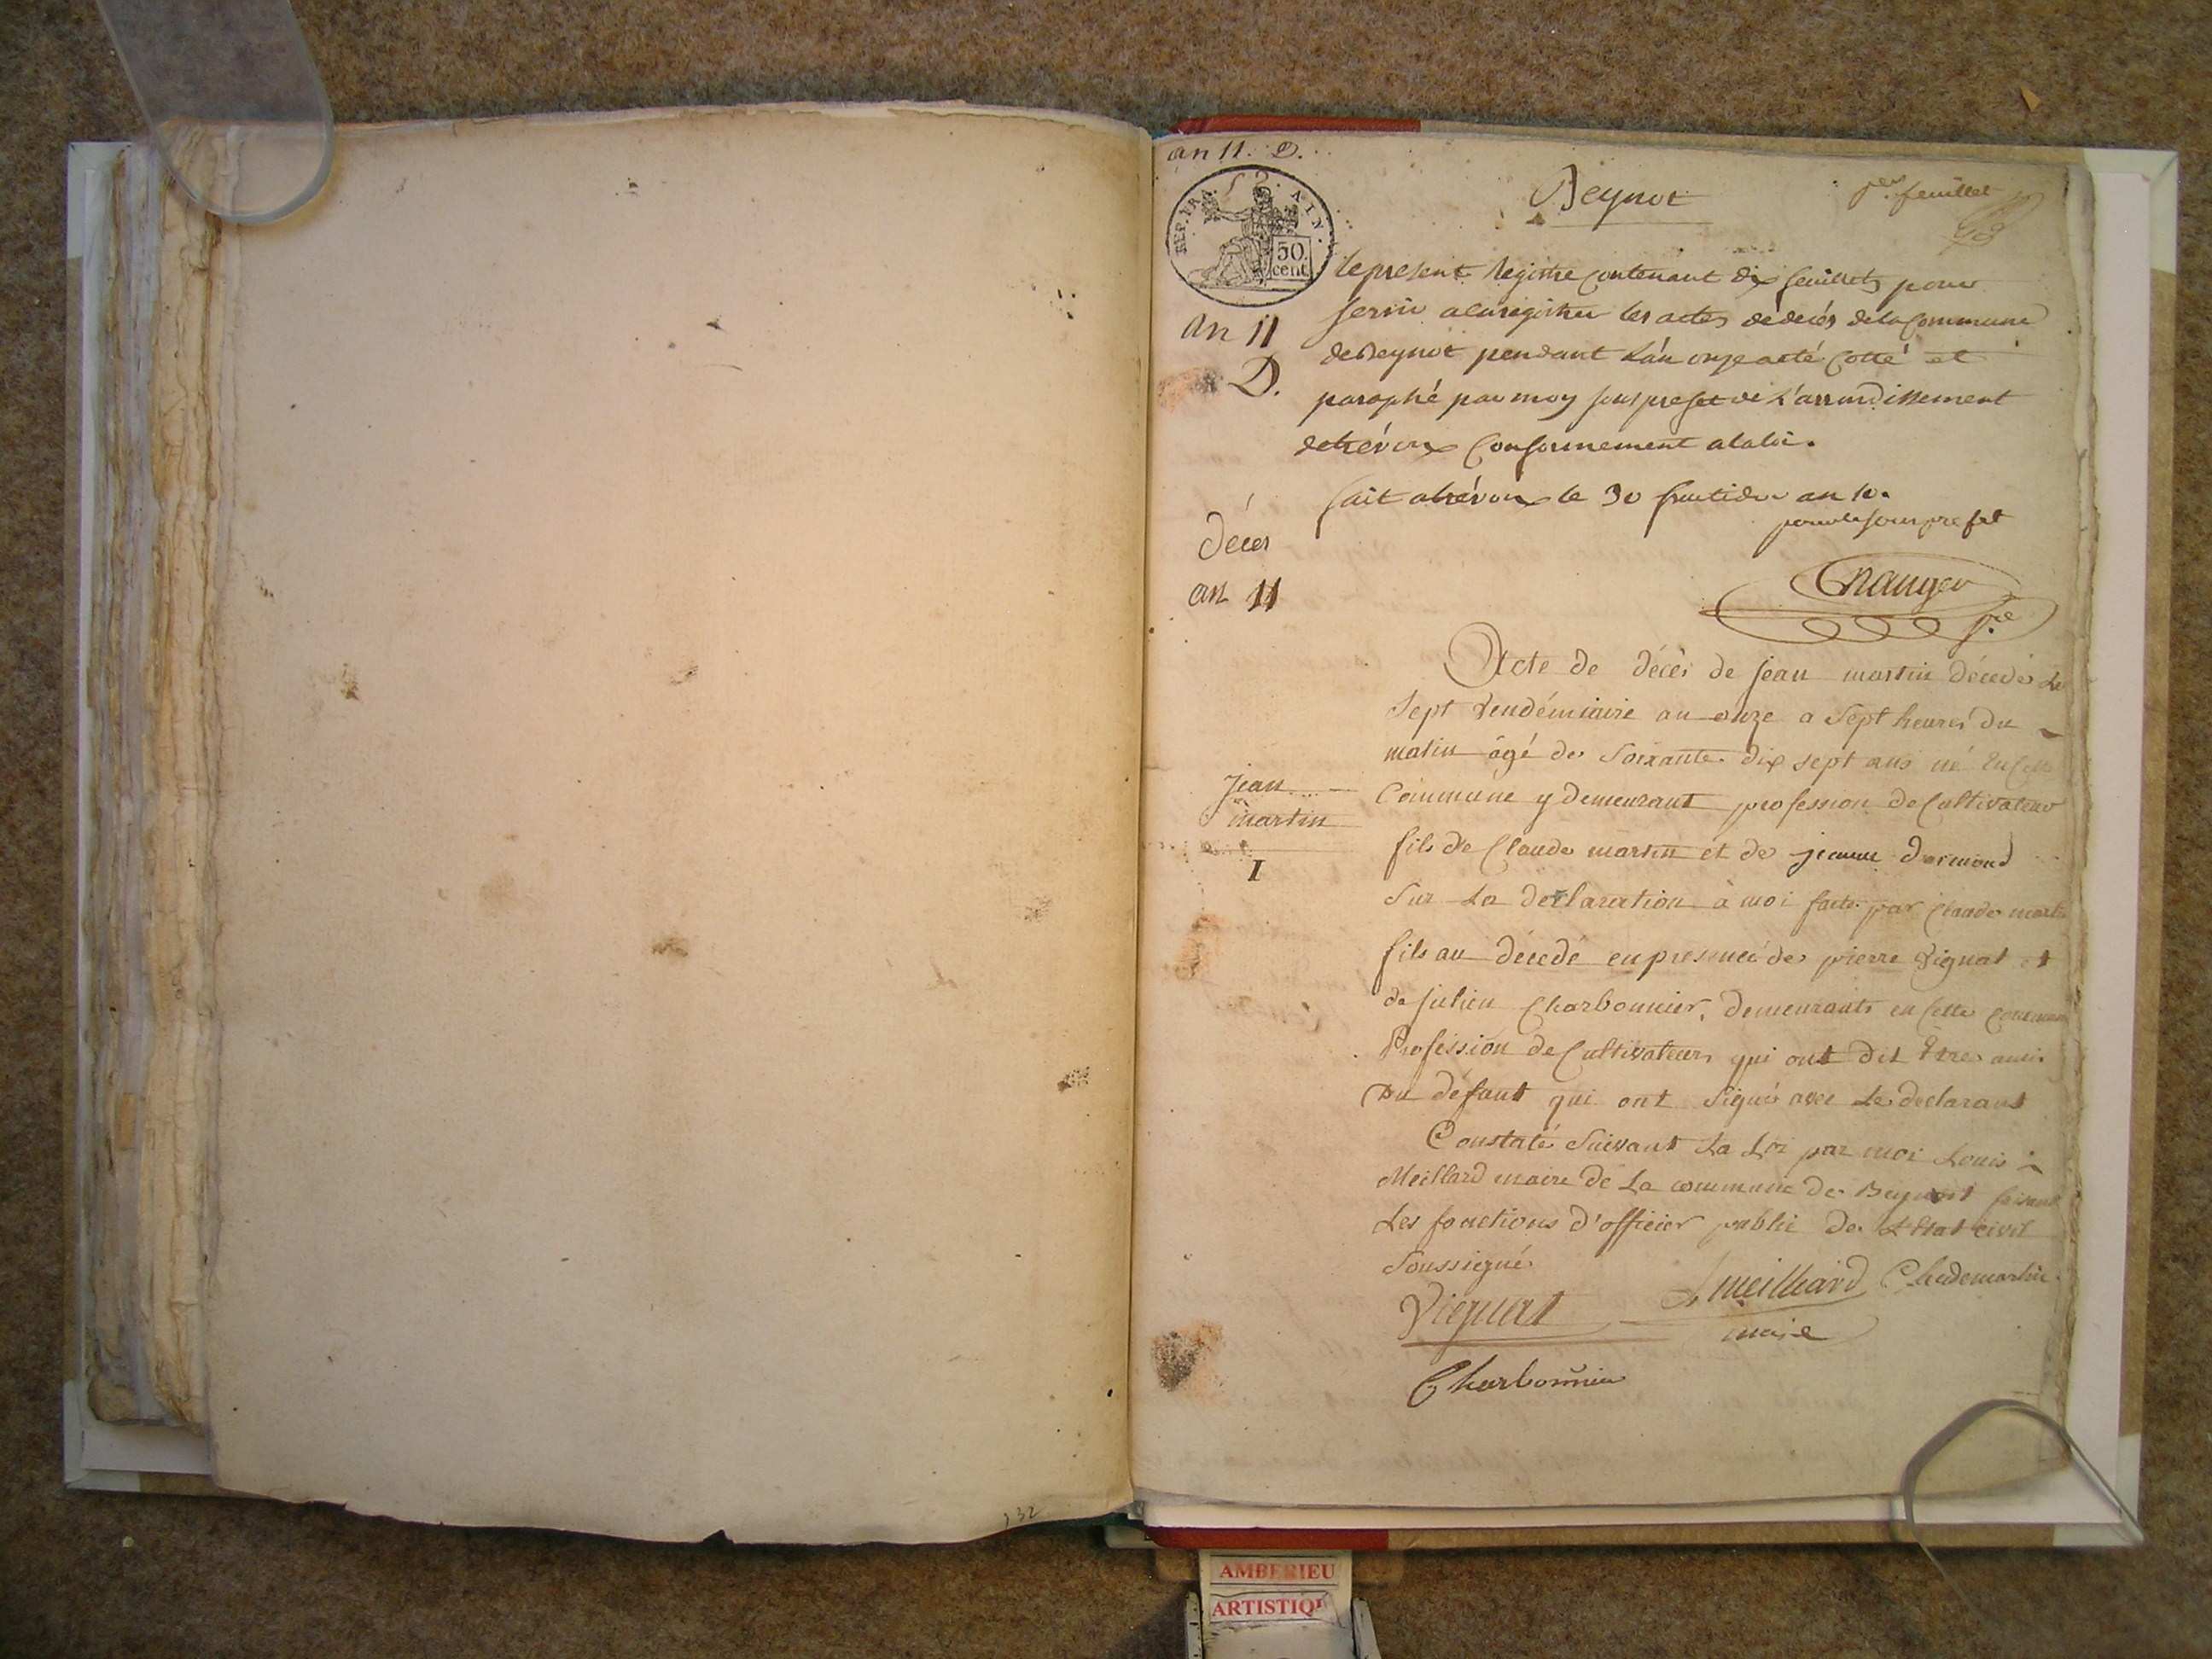 an 11. D.
REP. FRA. AIN.
50
cent
Beynot
per. feuillet
le present Registre Contenant dix feuillets pour
servir a enregistrer les actes dédecés de la Commune
de Beynot pendant L'an onze a été Cotté et
paraphé par moy sousprefet de L'arrondissement
detrévoux Conformement alaloi.
fait atrévoux le 30 fructidor an 10.
pour le souspréfet
an 11
D.
Déces
an 11
Acte de décès de jean martin décedé Le
Sept Vendémiaire an onze a Sept heures du
matin âgé de Soixante dix sept ans né En Cette
Commune y demeurant profession de Cultivateur
fils de Claude martin et de jeanne Dormond
Sur La declaration à moi faite par Claude martin
fils au décedé en presence de pierre Vignat et
de julien Charbonnier, demeurants en Cette Commune
Profession de Cultivateurs qui ont dit Etre amis
Du défunt qui ont Signé avec Le declarant
Constaté Suivant La Loi par moi Louis
Meillard maire de La commune de Beynost faisant
Les fonctions d'officier public de L'Etat civil
Soussigné
jean
martin
1
Vignat
L meilliard
maire
Claudemartin
Charbonnier
132
AMBERIEU
ARTISTIQU